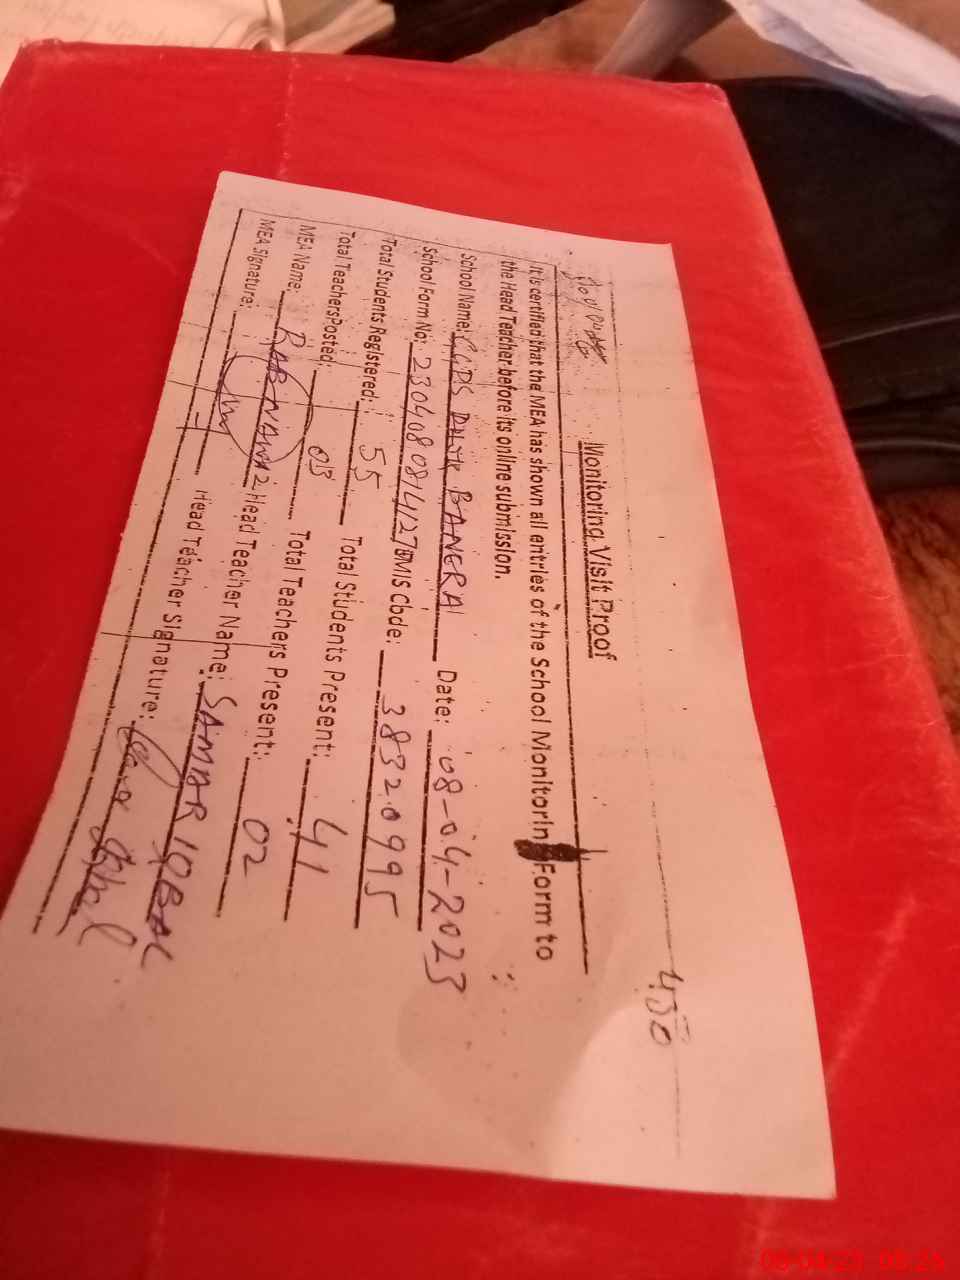 450
Monitoring Visit Proof
It is certified that the MEA has shown all entries of the School Monitorin Form to
the Head Teacher before its online submission.
School Name: GGPS DHOK BANERA Date: 08-04-2023
School Form No: 2304080814127 EMIS Code: 38320995
Total Students Registered: 55 Total Students Present: 41
Total Teachers Posted: 03 Total Teachers Present: 02
MEA Name: RAB NAWAZ Head Teacher Name: SAMAR IQBAL
MEA Signature: Head Teacher Signature: